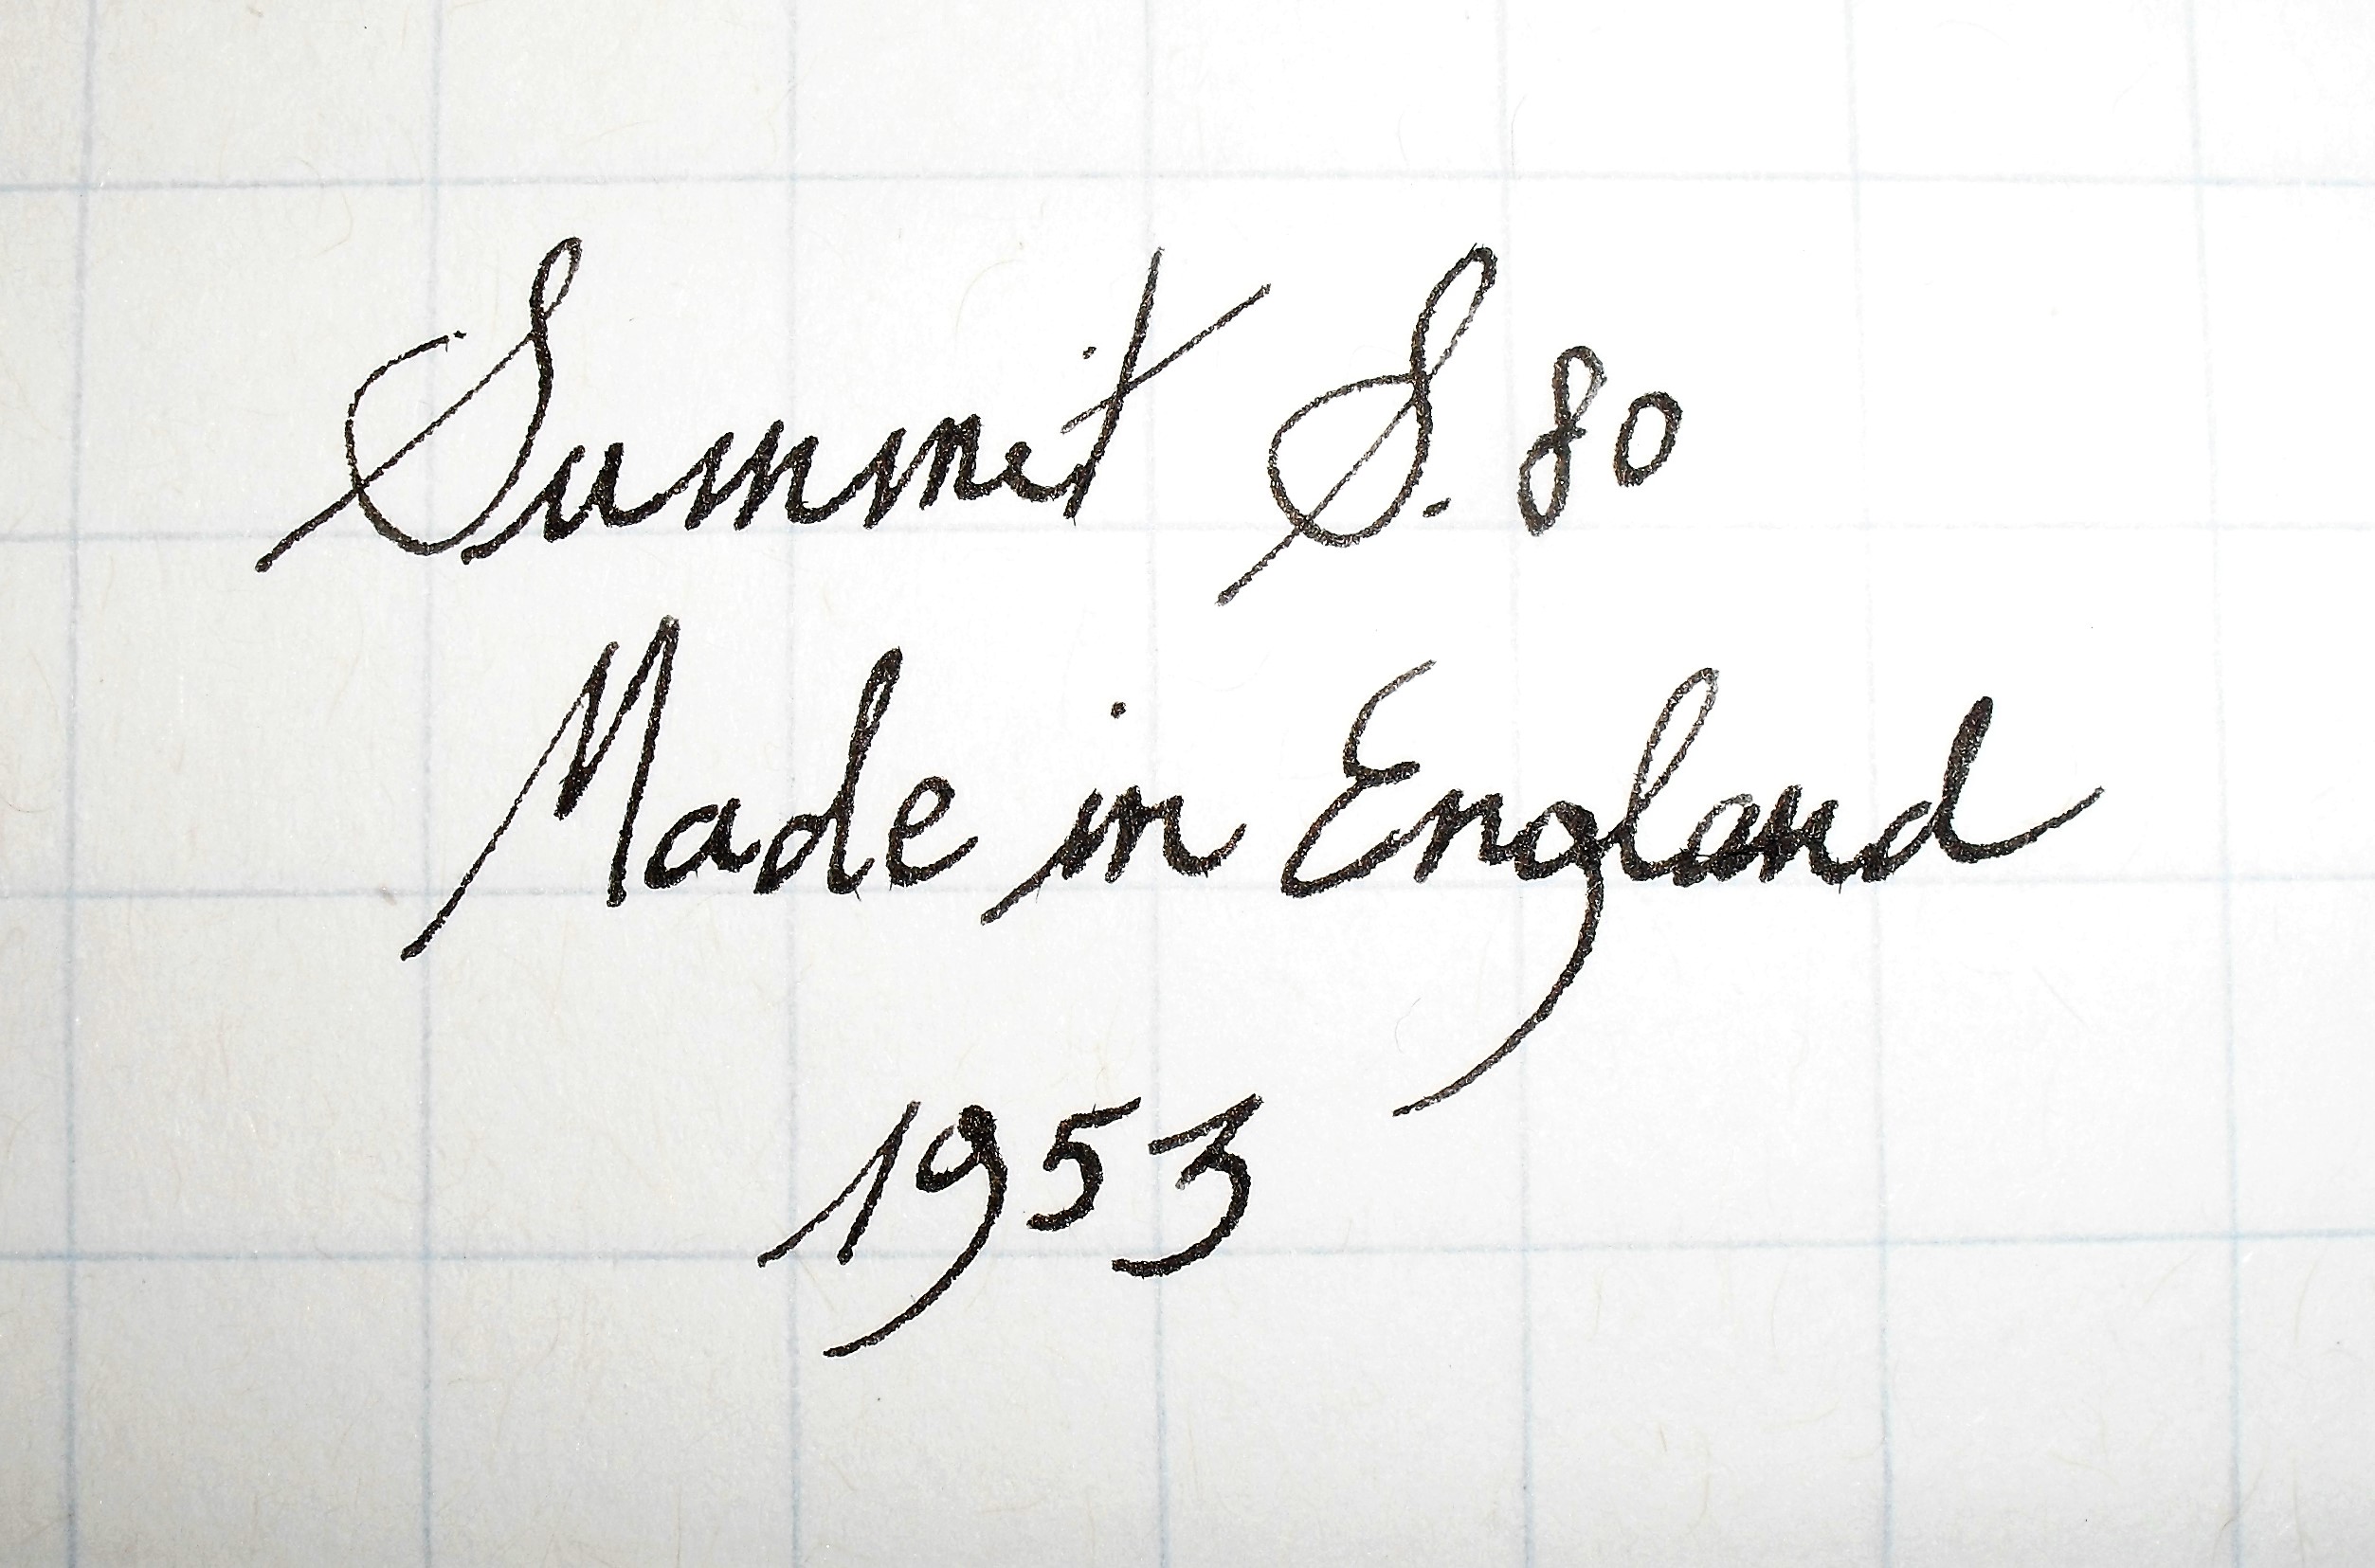 Summit S. 80
Made in England
1953